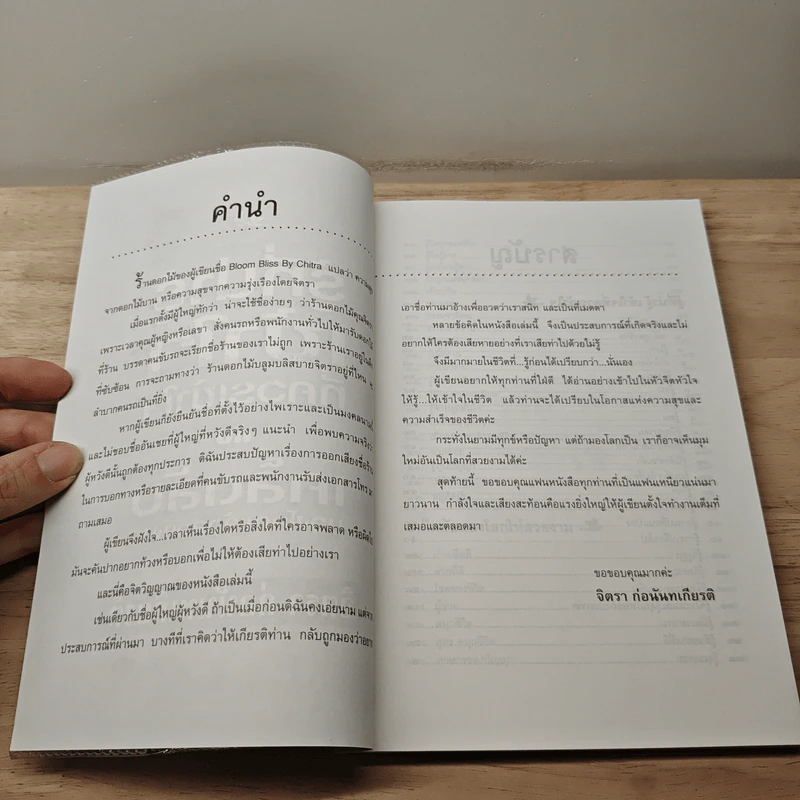 คำนำ
ร้านดอกไม้ของผู้เขียนชื่อ Bloom Bliss By Chitra แปลว่า
จากดอกไม้บาน หรือความสุขจากความรุ่งเรืองโดยจิตรา
เมื่อแรกตั้งมีผู้ใหญ่ทักว่า น่าจะใช้ชื่อง่ายๆ ว่าร้านดอกไม้คุณจิตรา
เพราะเวลาคุณผู้หญิงหรือเลขา สั่งคนรถหรือพนักงานทั่วไปให้มารับดอกไม้
ที่ร้าน บรรดาคนขับรถจะเรียกชื่อร้านของเราไม่ถูก เพราะร้านเราอยู่
ที่ซับซ้อน การจะถามทางว่า ร้านดอกไม้บลูมบลิสบายจิตราอยู่ที่ไหน
ลำบากคนรถเป็นที่ยิ่ง
หากผู้เขียนก็ยังยืนยันชื่อที่ตั้งไว้อย่างไพเราะและเป็นมงคล
และไม่ชอบชื่ออันเชยที่ผู้ใหญ่ที่หวังดีจริงๆ แนะนำ เพื่อพบความจริงว่า
ผู้หวังดีนั้นถูกต้องทุกประการ ดิฉันประสบปัญหาเรื่องการออกเสียงชื่อร้าน
ในการบอกทางหรือรายละเอียดที่คนขับรถและพนักงานรับส่งเอกสารโทร
ถามเสมอ
ผู้เขียนจึงฝังใจ...เวลาเห็นเรื่องใดหรือสิ่งใดที่ใครอาจพลาด หรือผิด
มันจะคันปากอยากท้วงหรือบอกเพื่อไม่ให้ต้องเสียท่าไปอย่างเรา
และนี่คือจิตวิญญาณของหนังสือเล่มนี้
เช่นเดียวกับชื่อผู้ใหญ่ผู้หวังดี ถ้าเป็นเมื่อก่อนดิฉันคงเอ่ยนาม แต่จาก
ประสบการณ์ที่ผ่านมา บางทีที่เราคิดว่าให้เกียรติท่าน กลับถูกมองว่า
เอาชื่อท่านมาอ้างเพื่ออวดว่าเราสนิท และเป็นที่เมตตา
หลายข้อคิดในหนังสือเล่มนี้ จึงเป็นประสบการณ์ที่เกิดจริงและไม่
อยากให้ใครต้องเสียหายอย่างที่เราเสียท่าไปด้วยไม่รู้
จึงมีมากมายในชีวิตที่...รู้ก่อนได้เปรียบกว่า...นั่นเอง
ผู้เขียนอยากให้ทุกท่านที่ใฝ่ดี ได้อ่านอย่างเข้าไปในหัวจิตหัวใจ
ให้รู้...ให้เข้าใจในชีวิต แล้วท่านจะได้เปรียบในโอกาสแห่งความสุขและ
ความสำเร็จของชีวิตค่ะ
กระทั่งในยามมีทุกข์หรือปัญหา แต่ถ้ามองโลกเป็น เราก็อาจเห็นมุม
ใหม่อันเป็นโลกที่สวยงามได้ค่ะ
สุดท้ายนี้ ขอขอบคุณแฟนหนังสือทุกท่านที่เป็นแฟนเหนียวแน่นมา
ยาวนาน กำลังใจและเสียงสะท้อนคือแรงยิ่งใหญ่ให้ผู้เขียนตั้งใจทำงานเต็มที่
เสมอและตลอดมา
ขอขอบคุณมากค่ะ
จิตรา ก่อนันทเกียรติ